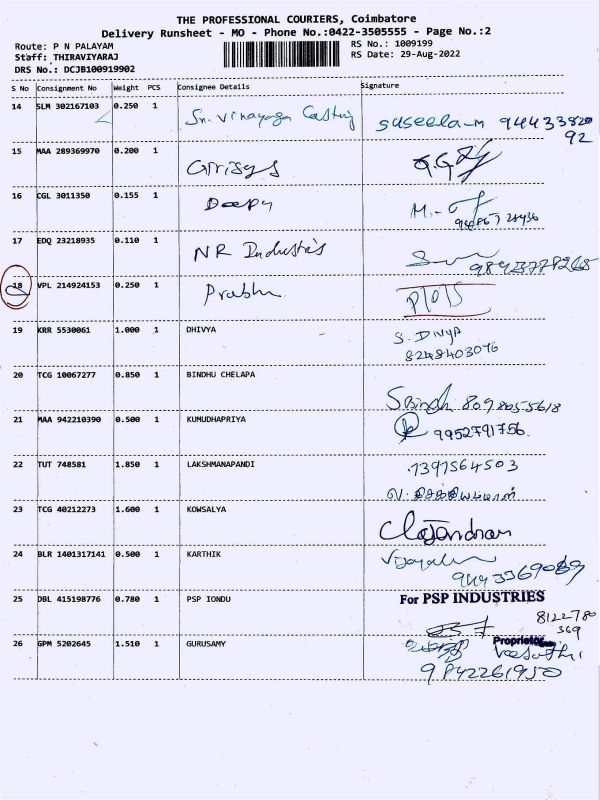 THE PROFESSIONAL COURIERS, Coimbatore
Delivery Runsheet - MO - Phone No.:0422-3505555 - Page No.:2
Route: P N PALAYAM
RS No.: 1009199
Staff: THIRAVIYARAJ
RS Date: 29-Aug-2022
DRS No.: DCJB100919902
S No Consignment No Weight PCS Consignee Details Signature
14 SLM 302167103 0.250 1 Sri. Vinayaga Casting Suseela-M 94433820
92
15 MAA 289369970 0.200 1
16 CGL 3011350 0.155 1 Deepy M.-
17 EDQ 23218935 0.110 1 NR Industris
18 VPL 214924153 0.250 1 Prabhu
19 KRR 5530061 1.000 1 DHIVYA S. Divya
8248403096
20 TCG 10067277 0.850 1 BINDHU CHELAPA
SBindh 8098055618
21 MAA 942210390 0.500 1 KUMUDHAPRIYA 9952791756.
22 TUT 748581 1.850 1 LAKSHMANAPANDI 7397564503
23 TCG 40212273 1.600 1 KOWSALYA
24 BLR 1401317141 0.500 1 KARTHIK
25 DBL 415198776 0.780 1 PSP IONDU For PSP INDUSTRIES
8122780
369
26 GPM 5202645 1.510 1 GURUSAMY Proprietor
9842261950